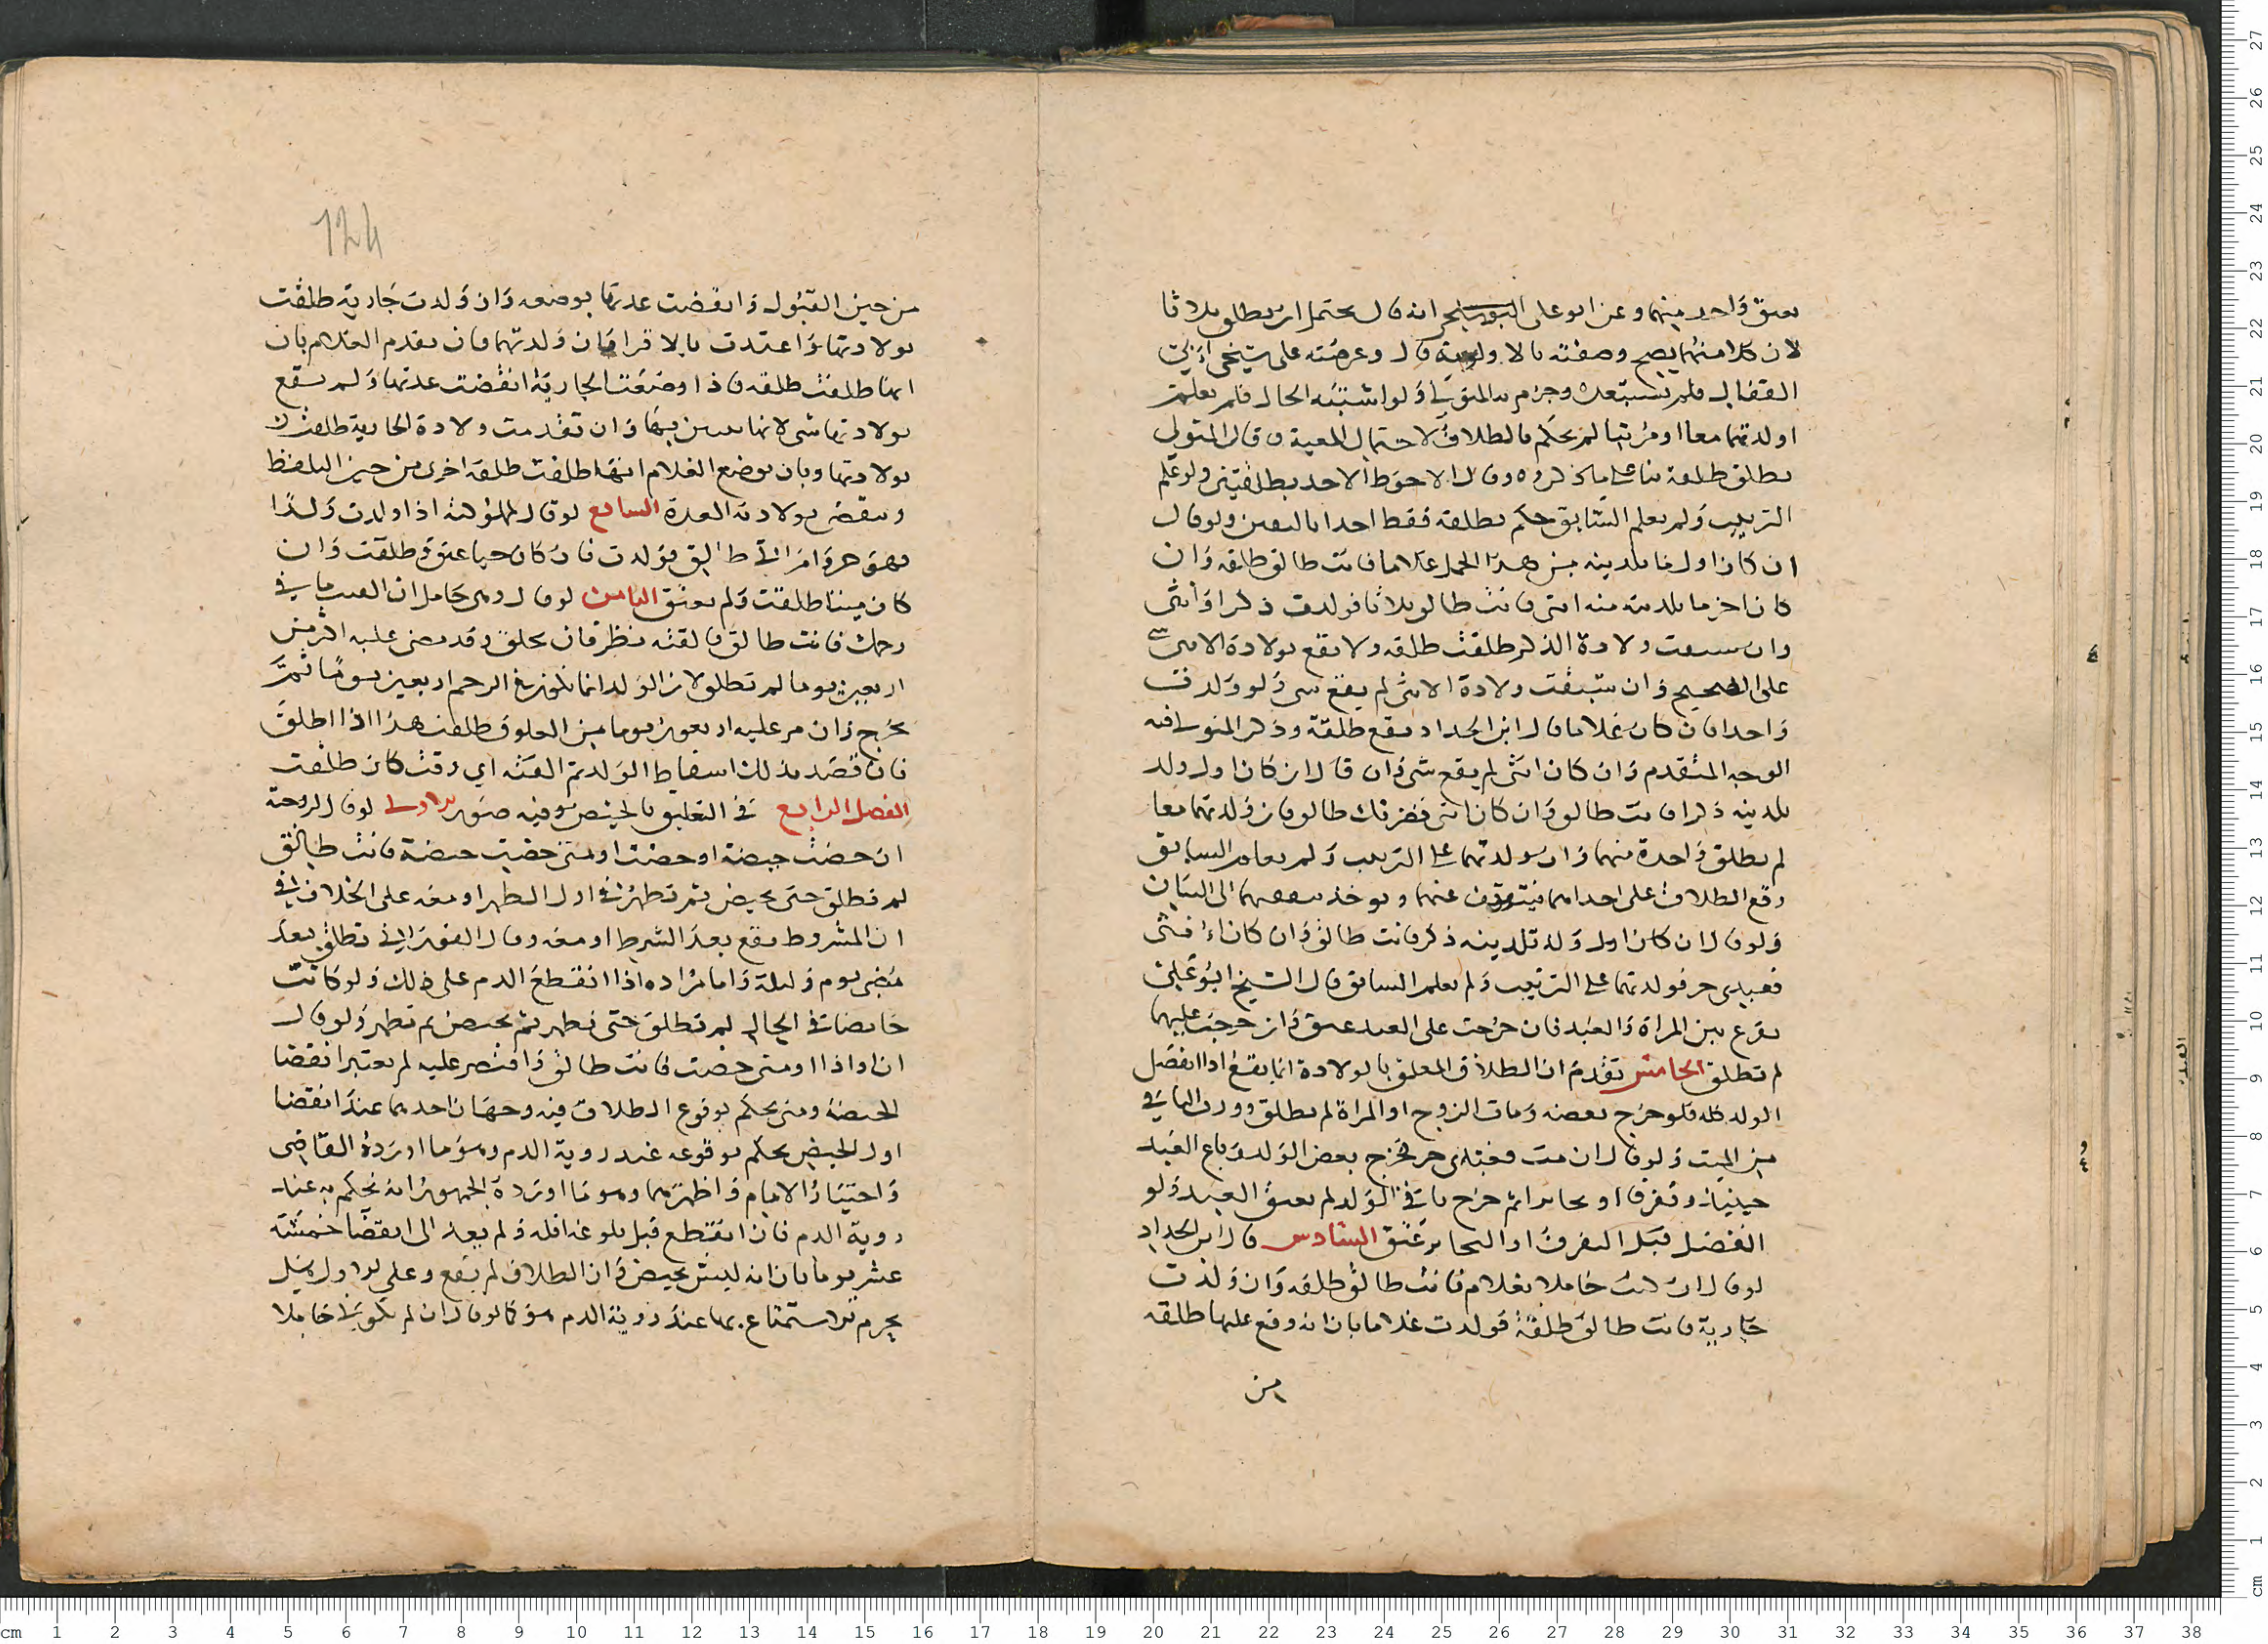 يعتق واحد منهما وعن ابو على السنجى انه قال يحتمل ان يطلق ثلاثا
لان كلا منهما يصح وصفته بالاولوية قال وعرضته على شيخى
القفال فلم يستبعده وجزم به المتولي ولو اشتبه الحال فلم يعلم
اولدتهما معا او مرتبا لم يحكم بالطلاق لاحتمال المعية وقال المتولي
يطلق طلقة بنا على ما ذكروه وقال الاحوط الاخد بطلقتين ولو علم
الترتيب ولم يعلم السابق حكم بطلقة فقط اخدا باليقين ولو قال
ان كان اول ما تلدينه من هذا الحمل غلاما فانت طالق طلقه وان
كان اخر ما تلدينه منه انثى فانت طالق ثلاثا فولدت ذكرا وانثى
وان سبقت ولادة الذكر طلقت طلقه ولا يقع بولادة الانثى شي
على الصحيح وان سبقت ولادة الانثى لم يقع شى ولو ولدت
واحدا فان كان غلاما قال ابن الحداد يقع طلقة وذكر المتولي فيه
الوجه المتقدم وان كان انثى لم يقع شى وان قال ان كان اول ولد
تلدينه ذكرا فانت طالق وان كان انثى فضرتك طالق فان ولدتهما معا
لم يطلق واحدة منهما وان ولدتهما على الترتيب ولم يعلم السابق
وقع الطلاق على احداهما فيتوقف عنهما ويوخذ بنفقتهما الى البيان
ولو قال ان كان اول ولد تلدينه ذكر فانت طالق وان كان انثى
فعبدى حر فولدتهما على الترتيب ولم يعلم السابق قال الشيخ ابو على
يقرع بين المراة والعبد فان خرجت على العبد عتق وان خرجت عليهما
لم تطلق الخامس تقدم ان الطلاق المعلق بالولادة انما يقع اذا انفصل
الولد كله فلو خرج بعضه ومات الزوج او المراة لم يطلق وورث الباقي
من الميت ولو قال ان مت فعبدى حر فخرج بعض الولد وباع العبد
حينيذ وتفرقا او تخايرا ثم خرج باقي الولد لم يعتق العبد ولو
انفصل قبل التفرق او التخاير عتق السادس قال ابن الحداد
لو قال ان كنت حاملا بغلام فانت طالق طلقه وان ولدت
جارية فانت طالق طلقة فولدت غلاما بان انه وقع عليها طلقه
من
124
من حين القبول وانقضت عدتها بوضعه وان ولدت جارية طلقت
بولادتها واعتدت بالاقرا فان ولدتهما فان تقدم الغلام بان
انها طلقت طلقه فاذا وضعت الجارية انقضت عدتها ولم يقع
بولادتها شى لانها تبين بها وان تقدمت ولادة الجارية طلقت
بولادتها وبان بوضع الغلام انها طلقت طلقه اخرى من حين التلفظ
وتنقضى بولادته العدة السابع لو قال لمملوكته اذا ولدت ولدا
فهو حر وامراتي طالق فولدت فان كان حيا عتق وطلقت وان
كان ميتا طلقت ولم يعتق الثامن لو قال وهى حامل ان القيت ما في
رحمك فانت طالق فالقته نظر فان تخلق وقد مضى عليه اكثر من
اربعين يوما لم تطلق لان الولد انما يكون في الرحم اربعين يوما ثم
يخرج وان مر عليه اربعون يوما من العلوق طلقت هذا اذا اطلق
فان قصد بذلك اسقاط الولد ثم القته اي وقت كان طلقت
الفصل الرابع في التعليق بالحيض وفيه صور الاولى لو قال لزوجته
ان حضت حيضة او حضت او متى حضت حيضة فانت طالق
لم تطلق حتى تحيض ثم تطهر في اول الطهر او معه على الخلاف في
ان المشروط يقع بعد الشرط او معه وقال الفوراني تطلق بعد
مضى يوم وليلة واما مراده اذا انقطع الدم على ذلك ولو كانت
حايضا في الحال لم تطلق حتى تطهر ثم تحيض ثم تطهر ولو قال
ان او اذا او متى حضت فانت طالق واقتصر عليه لم يعتبر انقضا
الحيضة ومتى يحكم بوقوع الطلاق فيه وجهان احدهما عند انقضا
اول الحيض يحكم بوقوعه عند روية الدم وهو ما اورده القاضى
واختيار الامام واظهرهما وهو ما اورده الجمهور انه يحكم به عند
روية الدم فان انقطع قبل بلوغه اقله ولم يعد الى انقضا خمسة
عشر يوما بان انه ليس بحيض وان الطلاق لم يقع وعلى الاول هل
يحرم الاستمتاع بها عند روية الدم هو كما لو قال ان لم تكوني حاملا